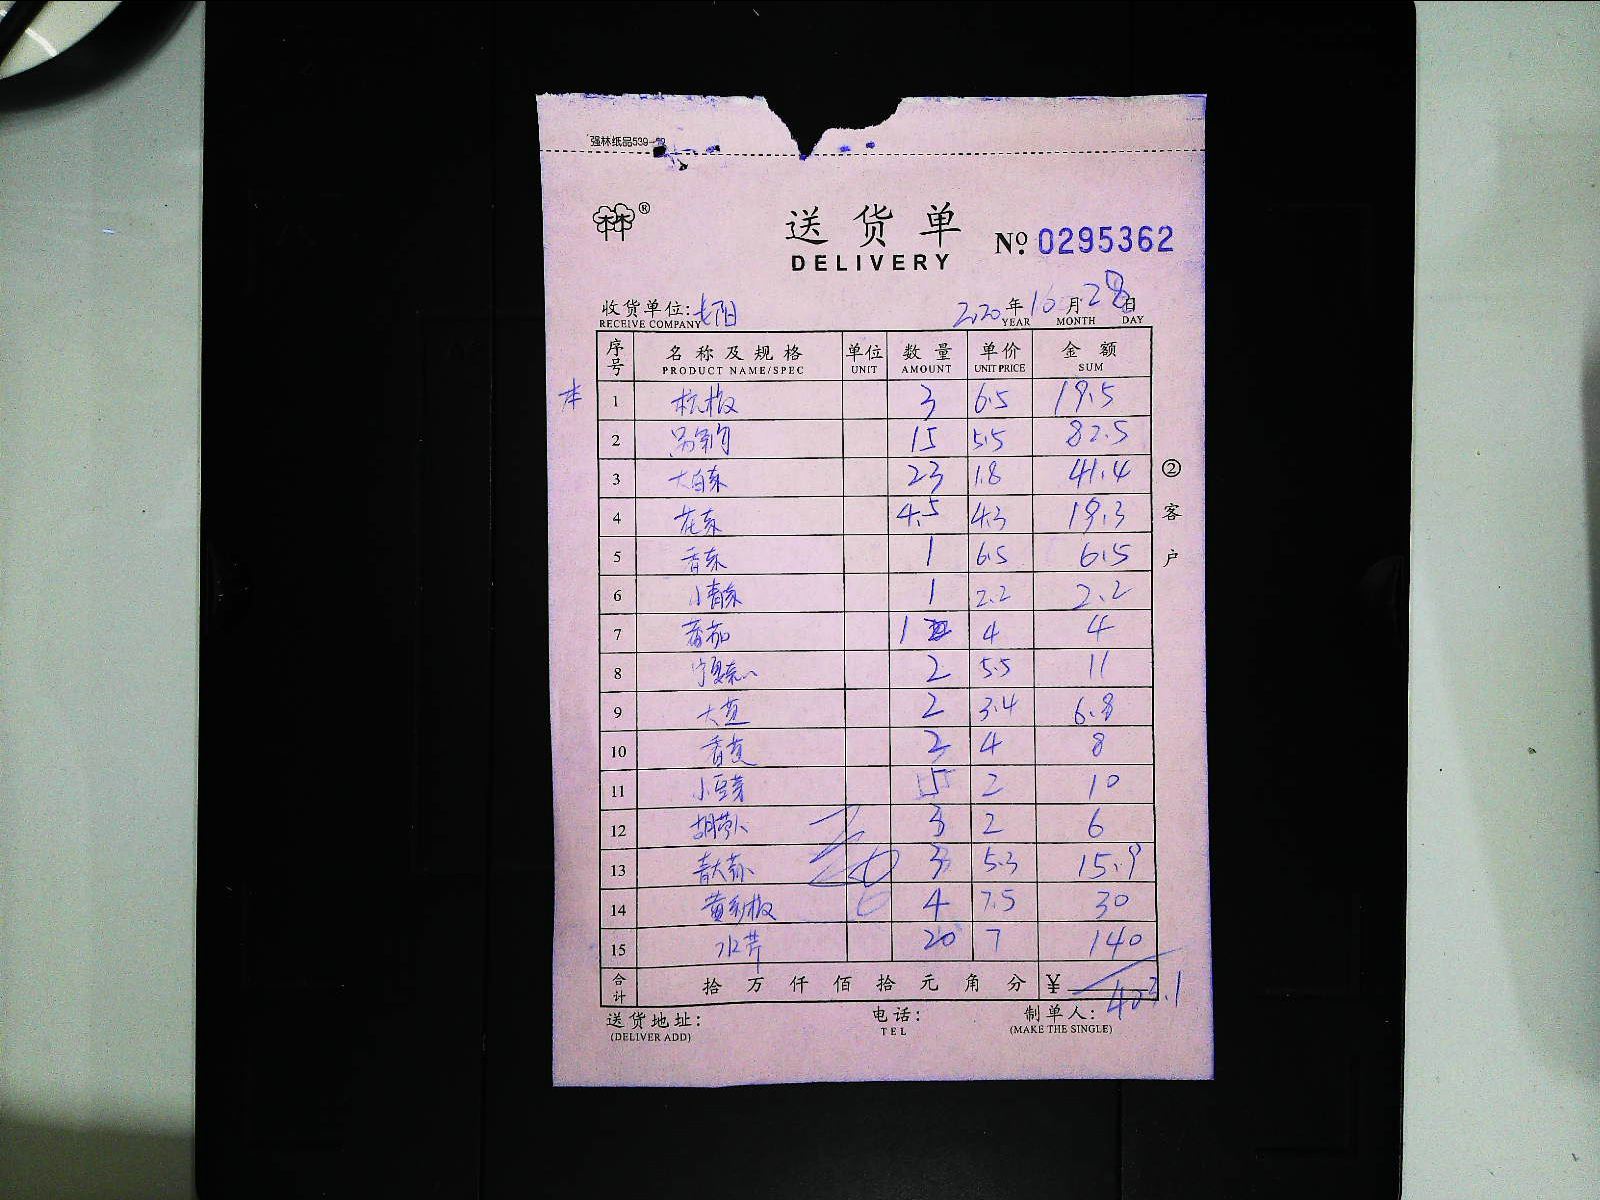 强林纸品539-
林林®
送货单
DELIVERY
Nº. 0295362
收货单位: 七阳 2020年10月28日
RECEIVE COMPANY YEAR MONTH DAY
序号 名称及规格 单位 数量 单价 金额
PRODUCT NAME/SPEC UNIT AMOUNT UNIT PRICE SUM
1 杭椒 3 6.5 19.5
2 15 5.5 82.5
3 大白菜 23 1.8 41.4
4 花菜 4.5 4.3 19.3
5 香菜 1 6.5 6.5
6 小青菜 1 2.2 2.2
7 番茄 1 4 4
8 宁夏菜心 2 5.5 11
9 大葱 2 3.4 6.8
10 香葱 2 4 8
11 小豆芽 5 2 10
12 胡萝卜 3 2 6
13 青大蒜 3 5.3 15.9
14 黄彩椒 4 7.5 30
15 水芹 20 7 140
合计 拾万仟佰拾元角分 ¥ 403.1
送货地址: 电话: 制单人:
(DELIVER ADD) TEL (MAKE THE SINGLE)
②客户